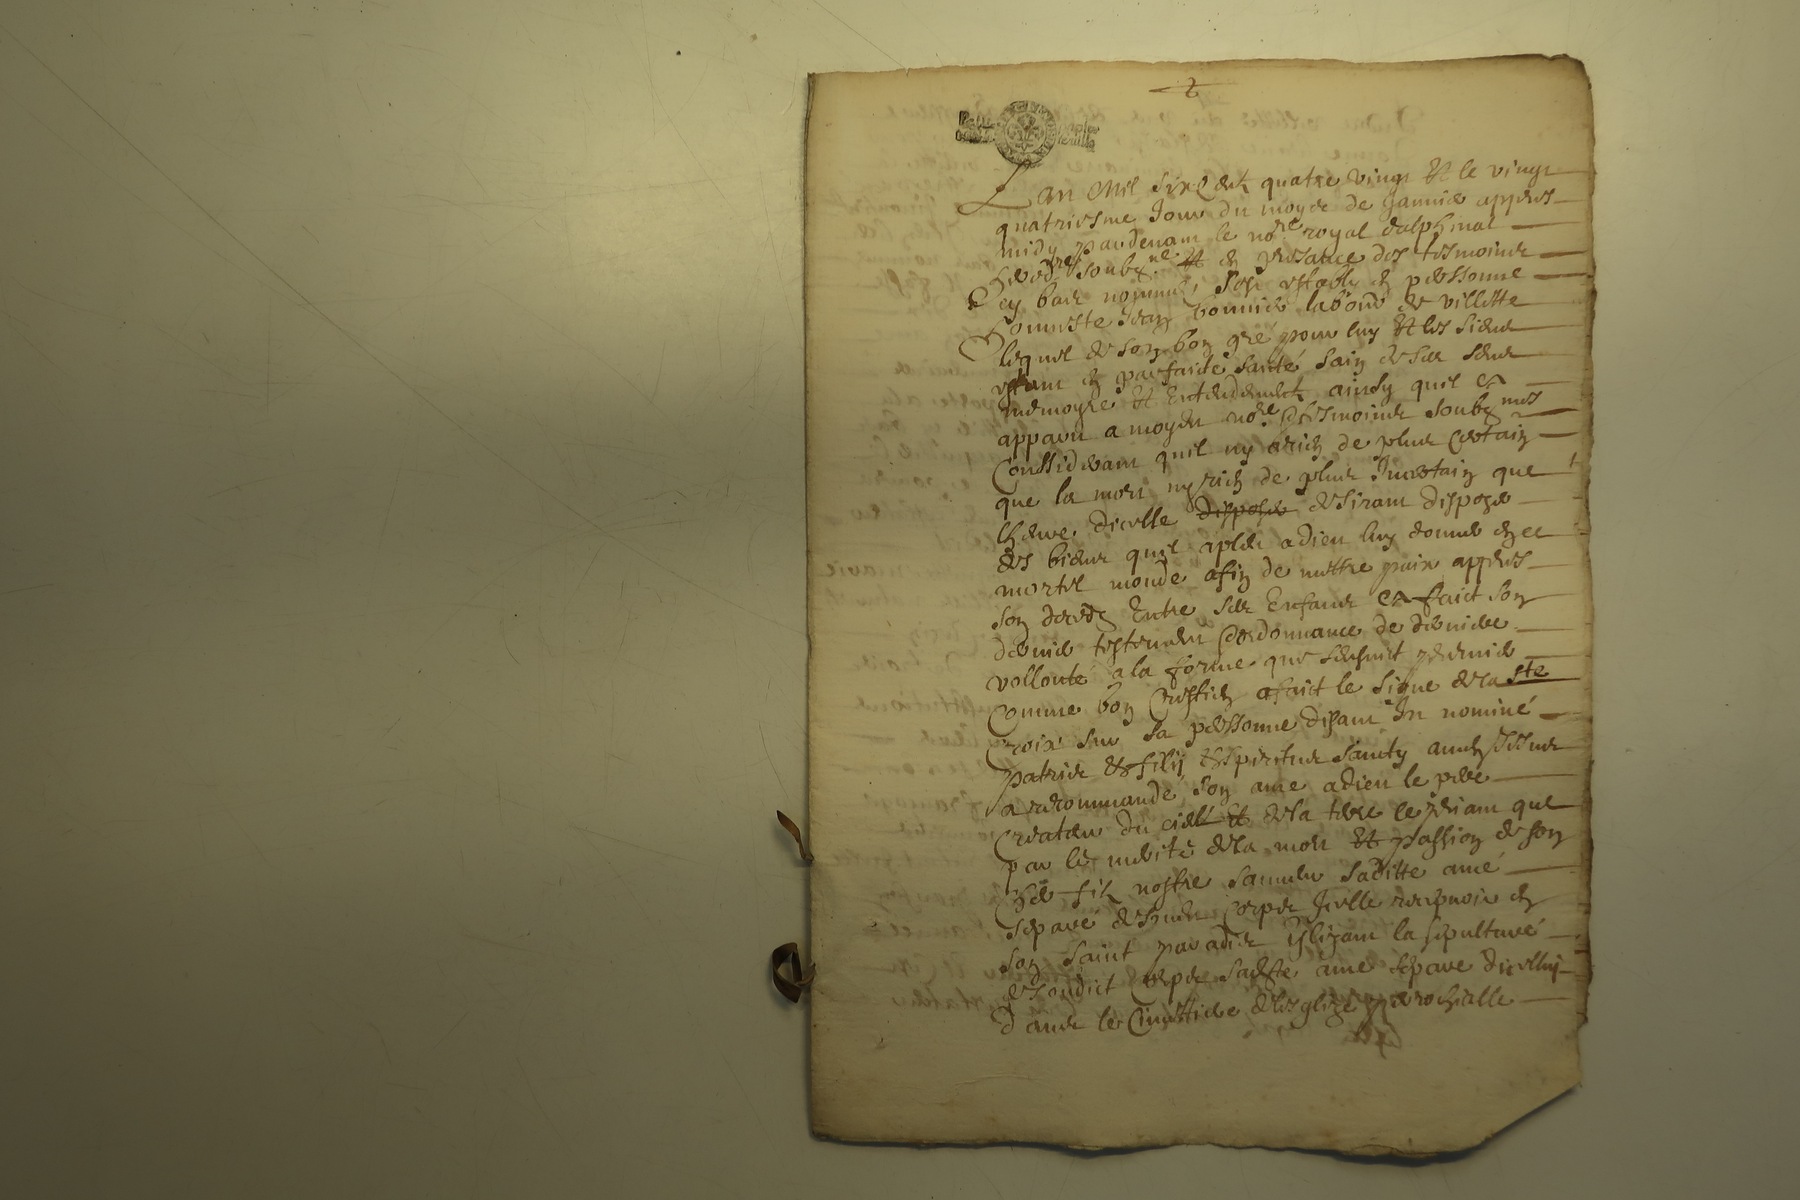 L an mil six Cent quatre vingt et le vingt
quatriesme Jour du moys de Janvier appres
midy pardevant le nore royal dalphinal
soubzne et en presance des tesmoins
cy bas nommes, s'est estably en personne
honneste Jean bonnier labour de villette
lequel de son bon gré pour luy et les siens
estant en parfaicte santé sain de ses sens
memoyre et entendement ainsy quil est
apparu a moydit nore et tesmoins soubznes
Considerant quil ny arien de plus Certain
que la mort ny rien de plus Incertain que
lheure dicelle disposer desirant disposer
des biens quil apleu adieu luy donner en ce
mortel monde afin de mettre paix appres
son deces Entre ses Enfans et faict son
dernier testement et ordonnance de derniere
vollonté a la forme que sensuit premier
Comme bon Crestien afait le signe de la ste
Croix sur sa personne disant In nominé
patris et filij et spiritus sancty amen
a recommandé son ame adieu le pere
Createur du ciel et de la terre le priant que
par le merite de la mort et passion de son
Cher fils nostre sauveur saditte ame
separé de sondit Corps Icelle recepvoir en
son saint paradis Eslizant la sepulture
de sondict Corps sadite ame separe dicelluy
dans le Cimettiere de lesglize parrochialle